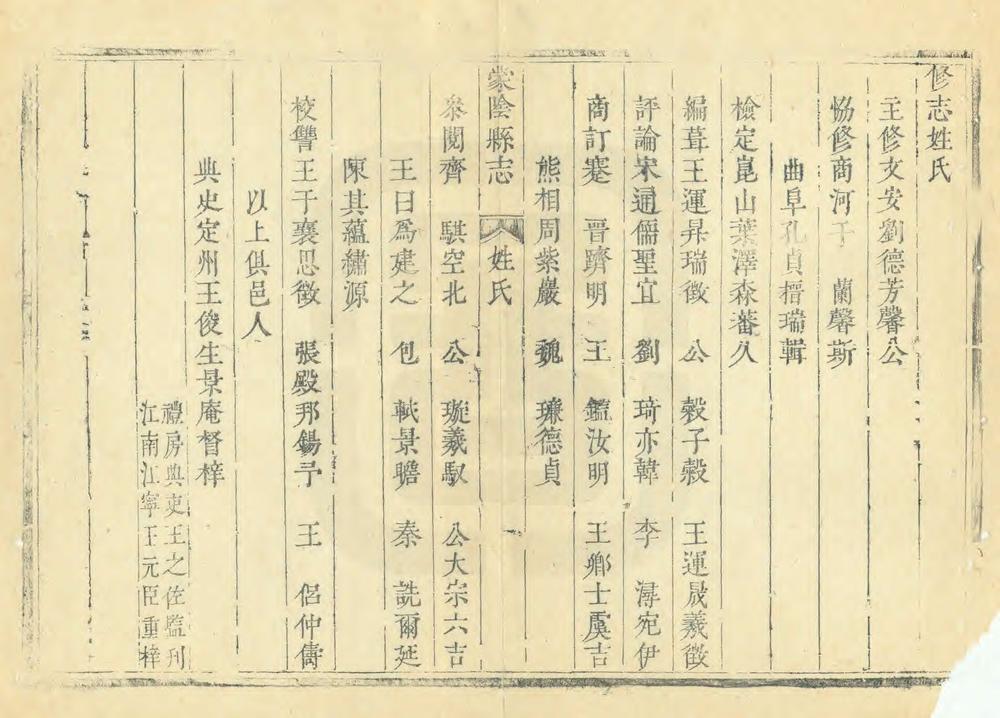 修志姓氏
主修文安劉德芳馨公
協修商河于 蘭馨斯
曲阜孔貞榗瑞輯
檢定崑山葉澤森蕃久
編葺王運昇瑞徵 公 穀子榖 王運晟羲徵
評論宋迺儒聖宜 劉 琦亦韓 李 潯宛伊
商訂蹇 晉躋明 王 鑑汝明 王鄉士虞吉
熊相周紫巖 魏 璉德貞
蒙陰縣志 姓氏
叅閱齊 騏空北 公 璇羲馭 公大宗六吉
王曰爲建之 包 軾景瞻 秦 詵爾延
陳其蘊繡源
校讐王于襄思徵 張殿邦錫予 王 侶仲儔
以上俱邑人
典史定州王俊生景庵督梓
禮房典吏王之佐監刊
江南江寧王元臣重梓